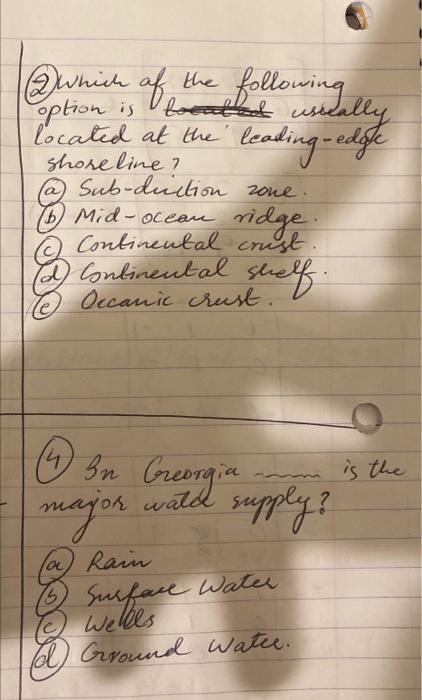 ② Which of the following
option is located usually
located at the leading-edge
shoreline?
ⓐ Sub-duction zone.
ⓑ Mid-ocean ridge.
ⓒ Continental crust.
ⓓ Continental shelf.
ⓔ Oceanic crust.
④ In Georgia ____ is the
major water supply?
ⓐ Rain
ⓑ Surface Water
ⓒ Wells
ⓓ Ground Water.